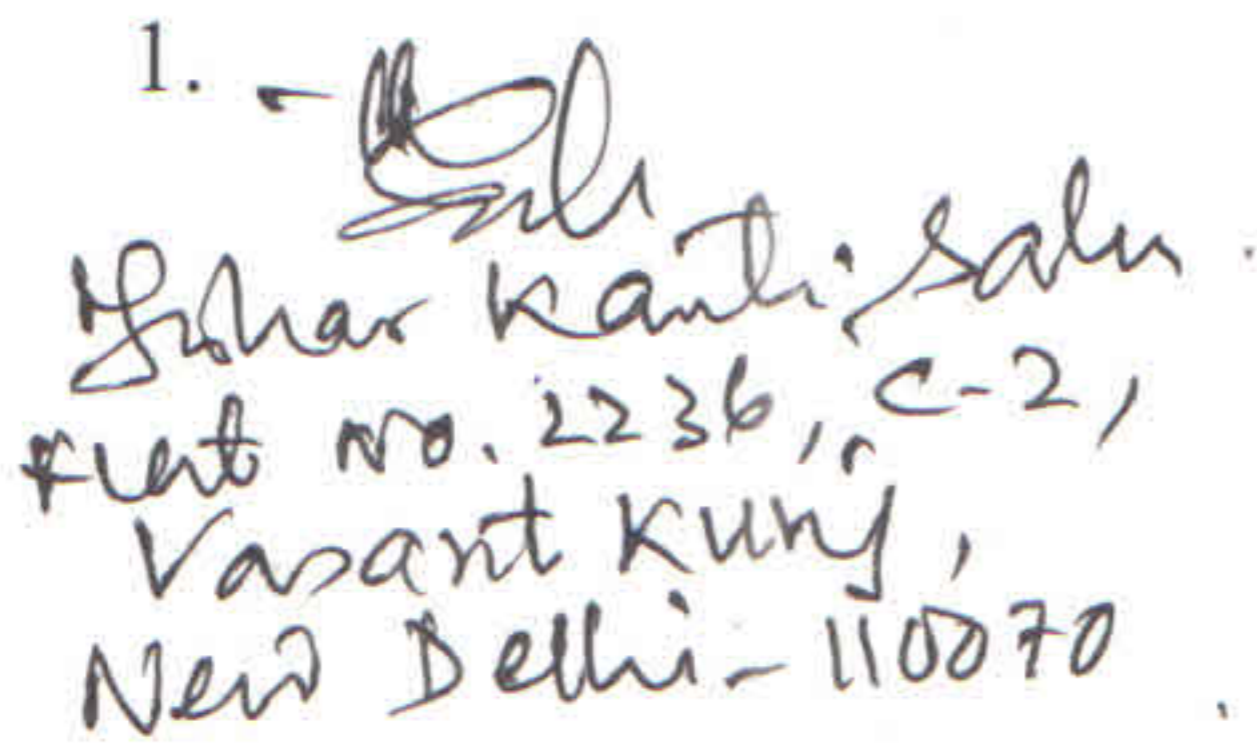 1.
Kanti Saha
Flat No. 2236, C-2,
Vasant Kunj,
New Delhi-110070